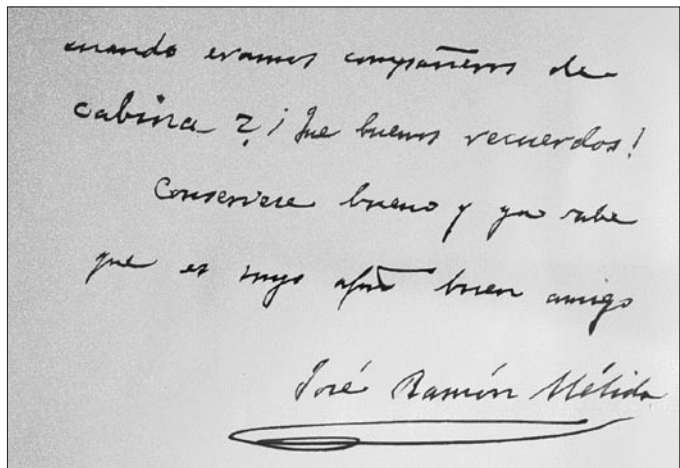 cuando eramos compañeros de
cabina? ¡Que buenos recuerdos!
Conservese bueno y ya sabe
que es suyo afmo buen amigo
José Ramón Mélida